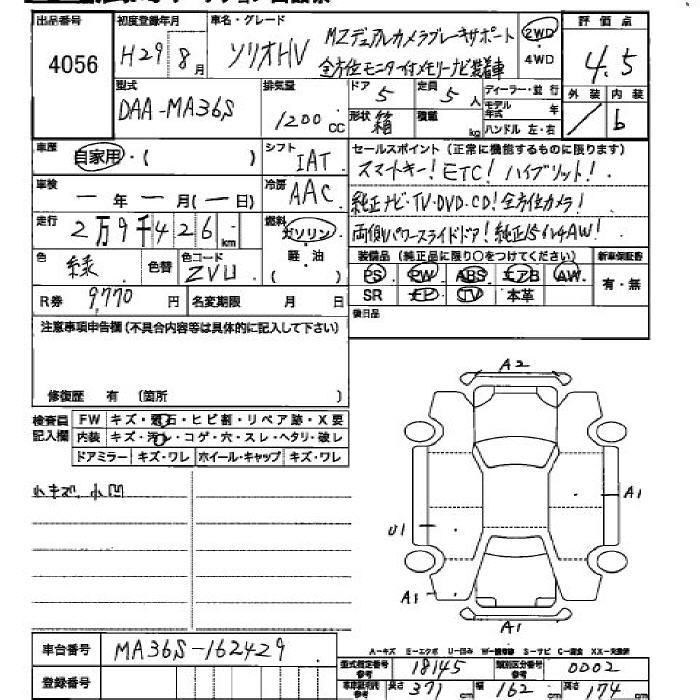 出品番号 初度登録年月 車名・グレード 評価点
4056 H29 8月 ソリオHV MZデュアルカメラブレーキサポート 2WD 4.5
全方位モニター付メモリーナビ装着車 4WD
型式 排気量 ドア 5 定員 5人 ディーラー・並行 外装 内装
DAA-MA36S 1200cc 形状 箱 積載 kg モデル年式 年 / b
ハンドル 左・右
車歴 自家用・( ) シフト IAT セールスポイント(正常に機能するものに限ります)
スマートキー!ETC!ハイブリット!
車検 ー年ー月(ー日) 冷房 AAC 純正ナビ・TV・DVD・CD!全方位カメラ!
走行 2万9千426km 燃料 ガソリン 両側パワースライドドア!純正15インチAW!
色 緑 色替 色コード ZVU 軽・油 ( ) 装備品(純正品に限り○をつけてください) 新車保証書
PS PW ABS エアB AW 有・無
R券 9,770円 名変期限 月 日 SR ナビ TV 本革
後日品
注意事項申告欄(不具合内容等は具体的に記入して下さい)
修復歴 有 〔箇所 〕
A2
検査員記入欄 FW キズ・飛石・ヒビ割・リペア跡・X要
内装 キズ・汚レ・コゲ・穴・スレ・ヘタリ・破レ
ドアミラー キズ・ワレ ホイール・キャップ キズ・ワレ
小キズ、小凹
A1
U1
A1
A1
車台番号 MA36S-162429 A-キズ E-エクボ U-凹み W-補修跡 S-サビ C-腐食 XX-交換済
型式指定番号 参考 18145 類別区分番号 参考 0002
登録番号 車検証判用 参考 長さ 371cm 幅 162cm 高さ 174cm